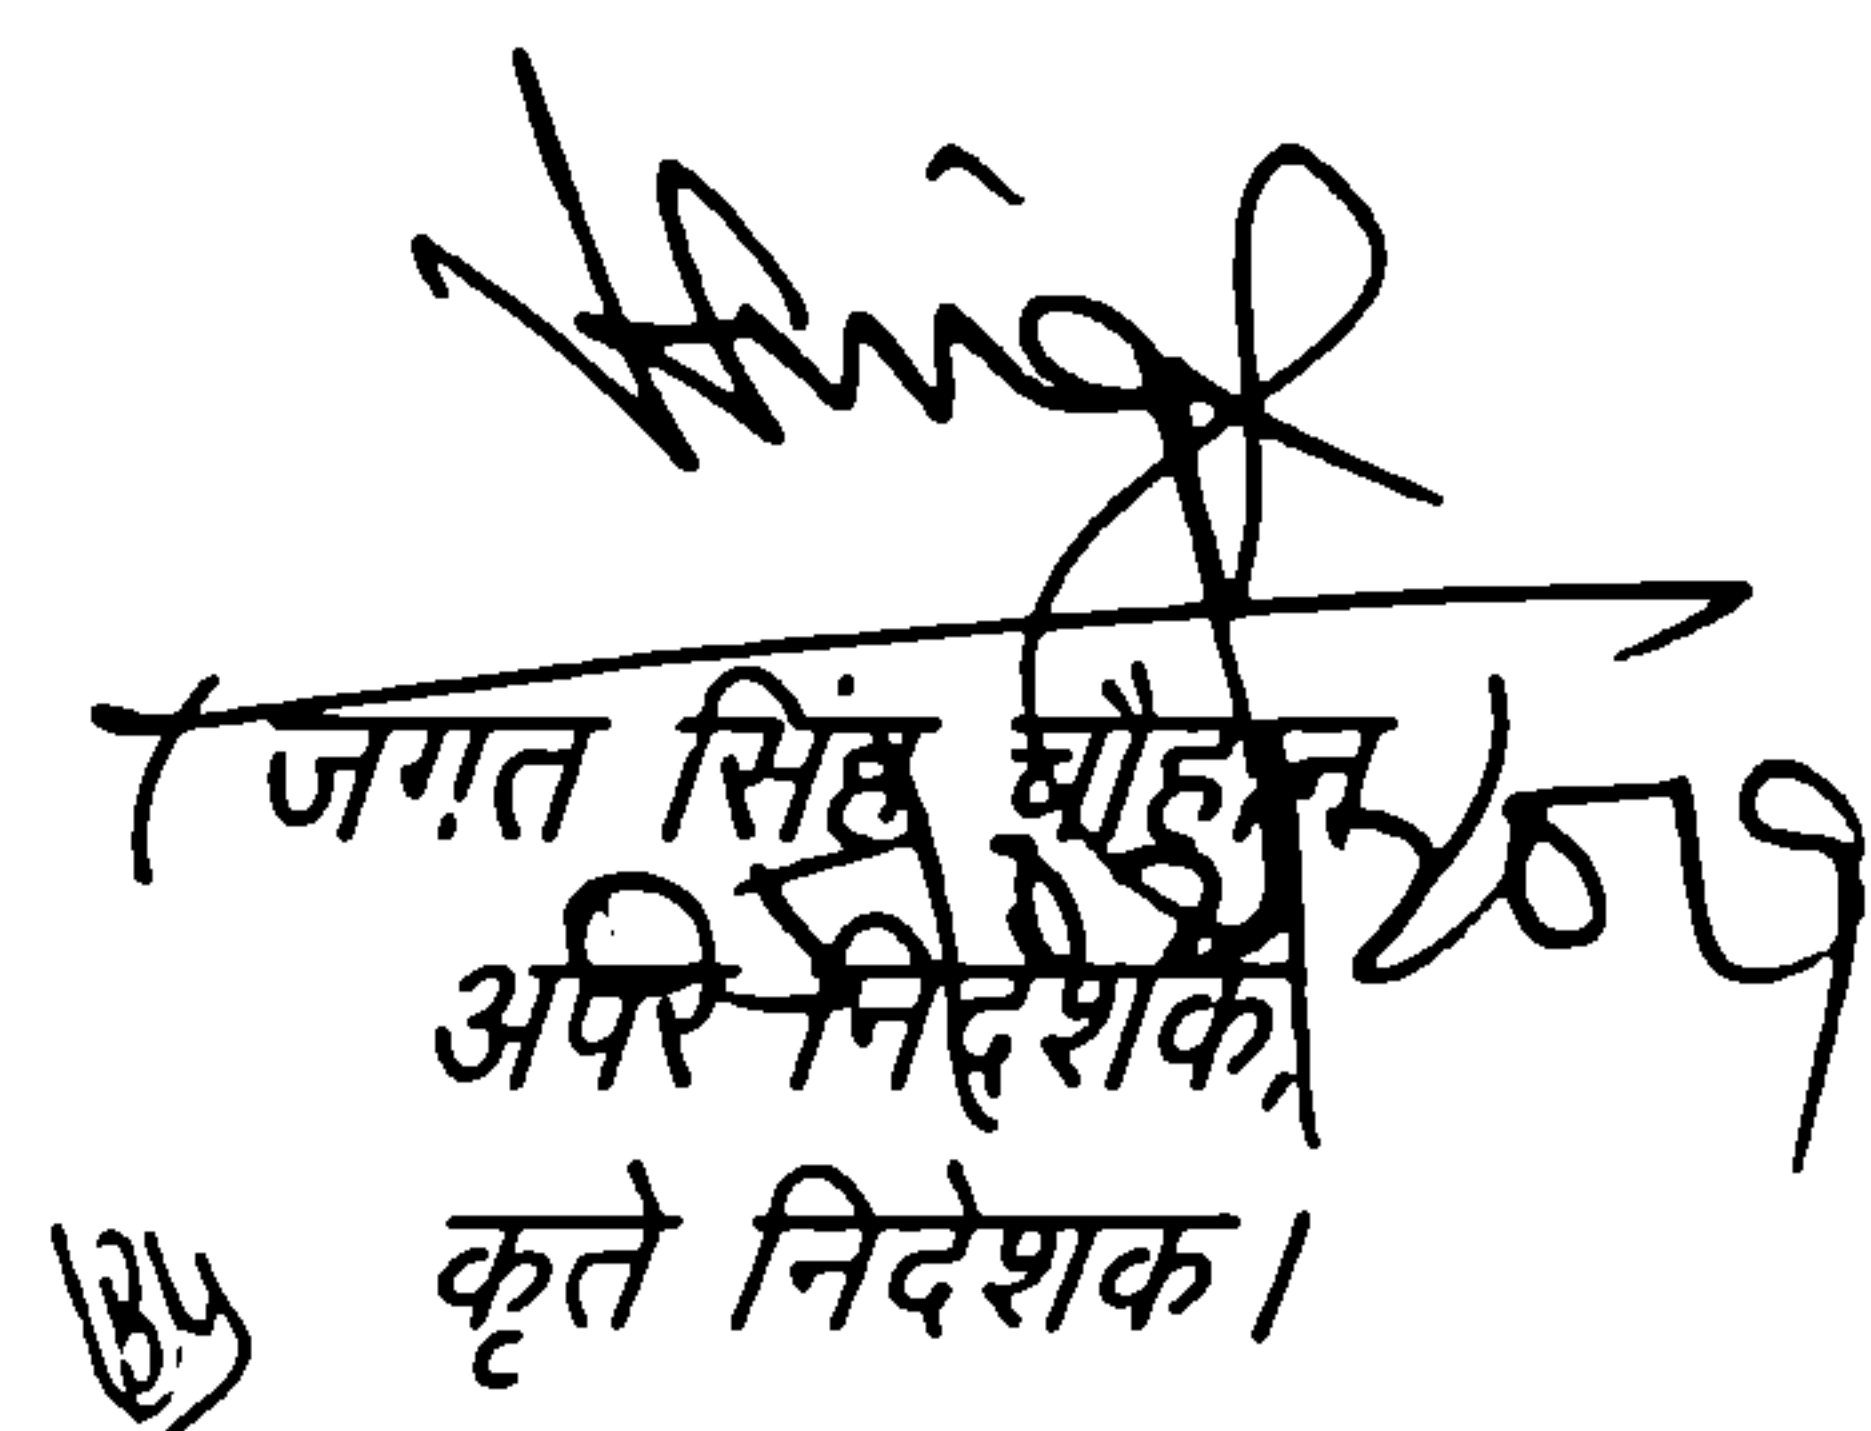 ( जगत सिंह चौहान )
अपर निदेशक,
कृते निदेशक।